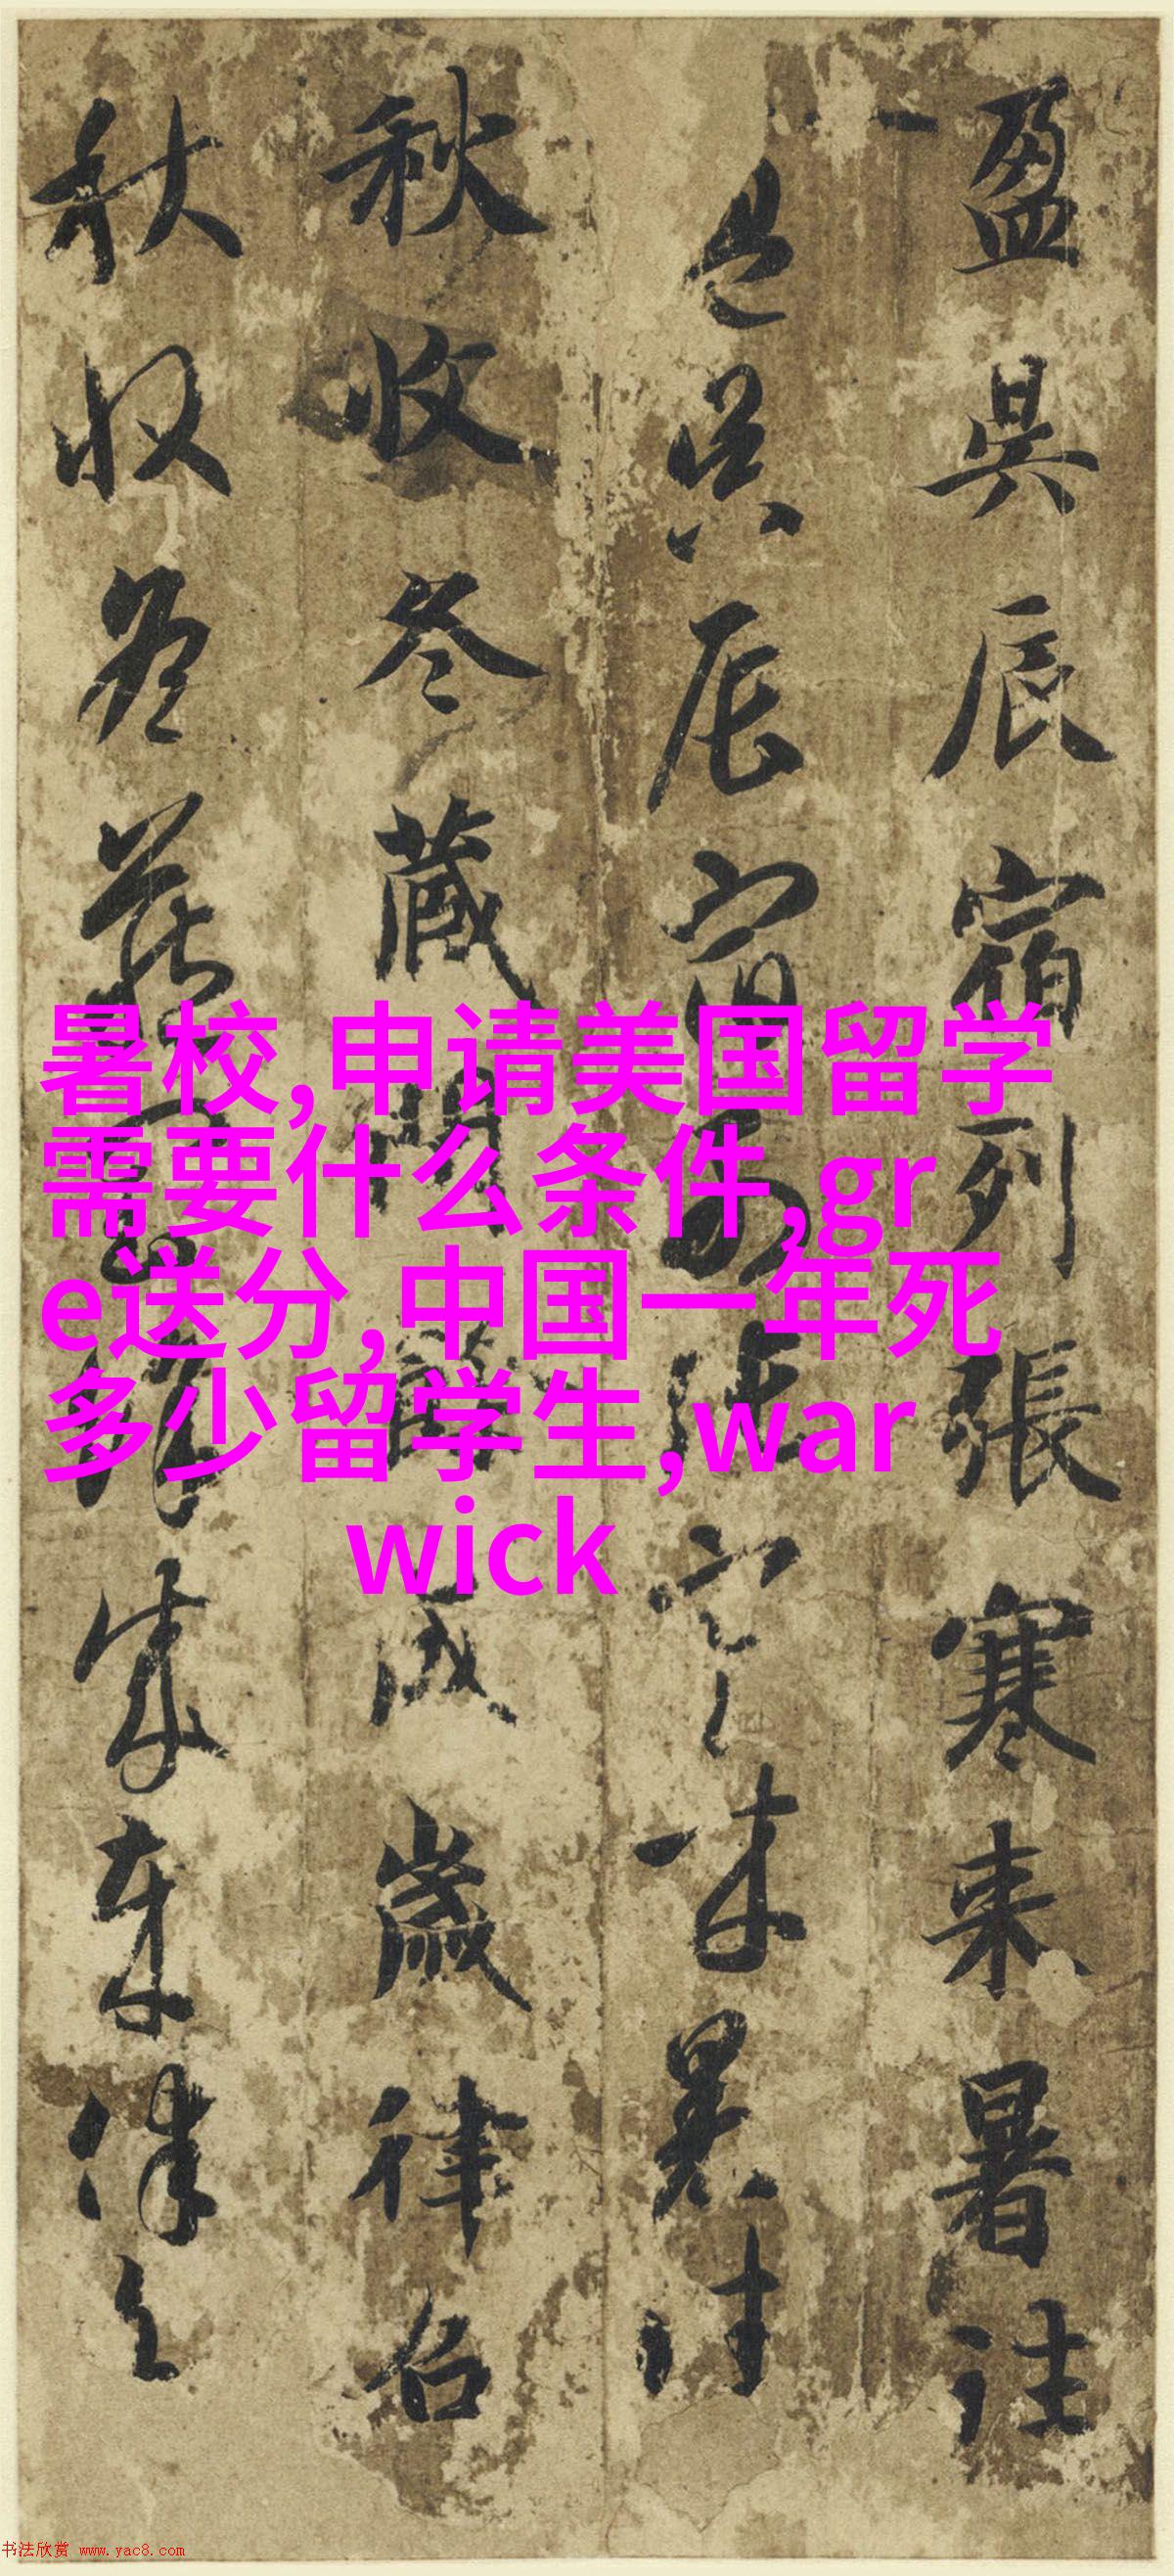 盈昃辰宿列張寒来暑往
盈昃辰宿列張寒来暑往
秋收冬藏閏餘成歲律召
秋收冬藏閏餘成歲律召
暑校,申请美国留学
需要什么条件,gr
e送分,中国一年死
多少留学生,war
wick
书法欣赏 www.yac8.com